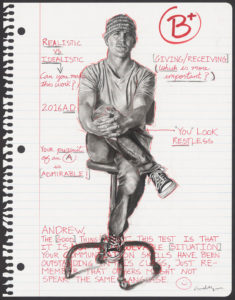 B+
REALISTIC
VS
IDEALISTIC
Can you make
this work?
[GIVING/RECEIVING]
(Which is more
important?)
2016 AD
YOU LOOK
RESTLESS
YOUR pursuit
of an (A)
is
ADMIRABLE!
ANDREW,
THE [GOOD] THING ABOUT THIS TEST IS THAT
IT IS A SITUATION
YOUR COMMUNICATION SKILLS HAVE BEEN
OUTSTANDING IN THIS CLASS, JUST RE-
MEMBER THAT OTHERS MIGHT NOT
SPEAK THE SAME LANGUAGE.